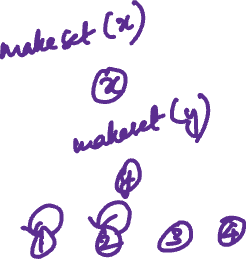 makeset (x)
x
makeset (y)
y
1 2 3 4